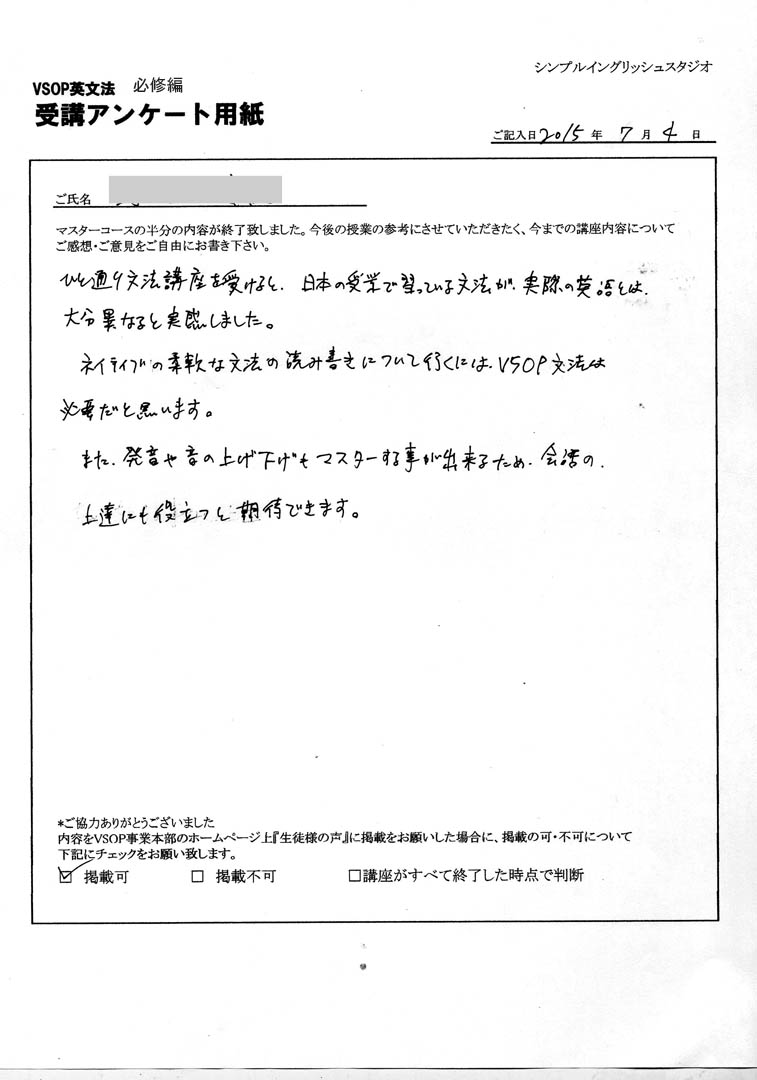 シンプルイングリッシュスタジオ
VSOP英文法 必修編
受講アンケート用紙
ご記入日 2015 年 7 月 4 日
ご氏名
マスターコースの半分の内容が終了致しました。今後の授業の参考にさせていただきたく、今までの講座内容について
ご感想・ご意見をご自由にお書き下さい。
ひと通り文法講座を受けると、日本の授業で習っている文法が、実際の英語とは、
大分異なると実感しました。
ネイティブの柔軟な文法の読み書きについて行くには、VSOP文法は
必要だと思います。
また、発音や音の上げ下げもマスターする事が出来るため、会話の、
上達にも役立つと期待できます。
*ご協力ありがとうございました
内容をVSOP事業本部のホームページ上『生徒様の声』に掲載をお願いした場合に、掲載の可・不可について
下記にチェックをお願い致します。
☑ 掲載可 □ 掲載不可 □講座がすべて終了した時点で判断